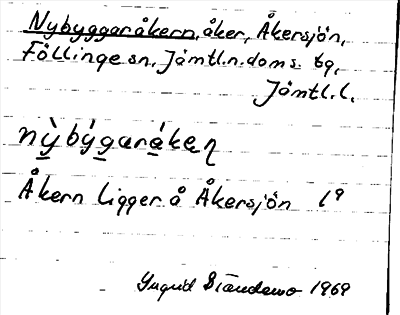 Nybyggaråkern, åker, Åkersjön,
Föllinge sn, Jämtl.n.doms. tg,
Jämtl.l.
nỳbýgaràken
Åkern ligger å Åkersjön 1a
Ingrid 1969